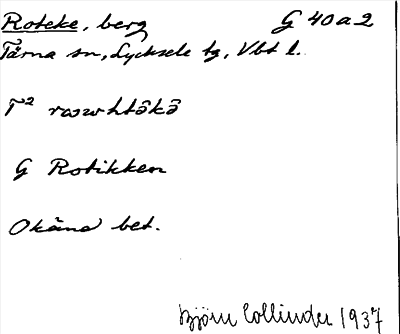 Roteke, berg G 40 a 2
Tärna sn, Lycksele tg, Vbt l.
G Rotikken
Okänd bet.
Björn Collinder 1937